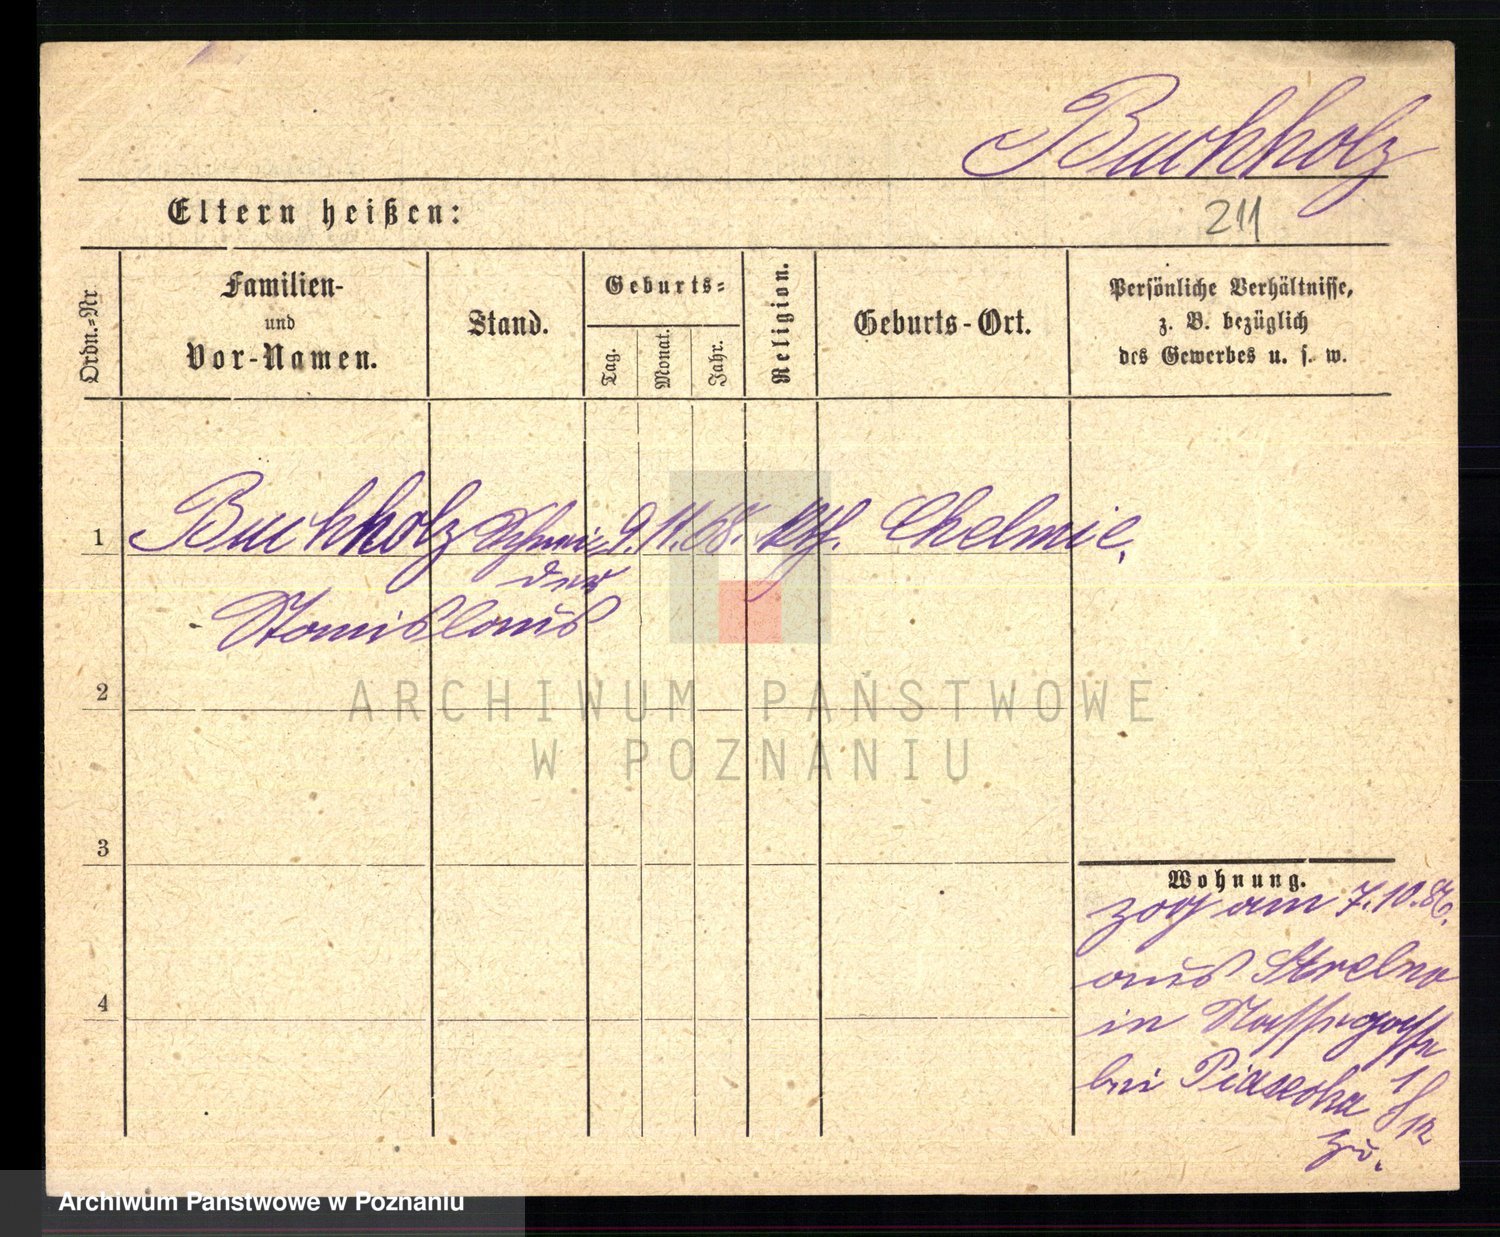 Buchholz
Eltern heißen:
211
Ordn.-Nr
Familien-
und
Vor-Namen.
Stand.
Geburts-
Tag.
Monat.
Jahr.
Religion.
Geburts-Ort.
Persönliche Verhältnisse,
z. B. bezüglich
des Gewerbes u. s. w.
1 Buchholz Schnei 9. 11. 68. kth. Chelmie.
der
Stanislaus
2
ARCHIWUM PAŃSTWOWE
W POZNANIU
3
Wohnung.
zog am 7.10.86.
aus Strelno
in
bei Piasecka
zu.
4
Archiwum Państwowe w Poznaniu